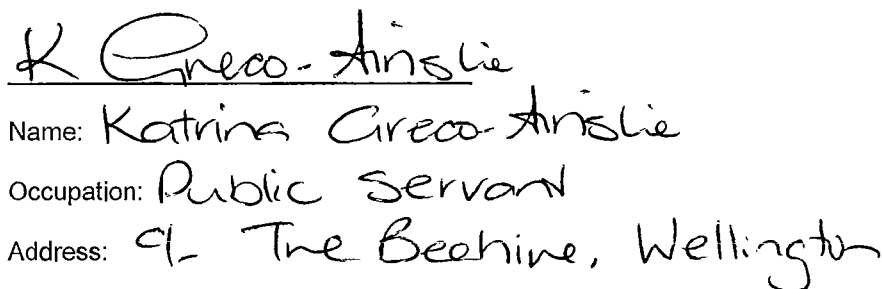 K Greco-Ainslie
Name: Katrina Greco-Ainslie
Occupation: Public Servant
Address: c/- The Beehive, Wellington